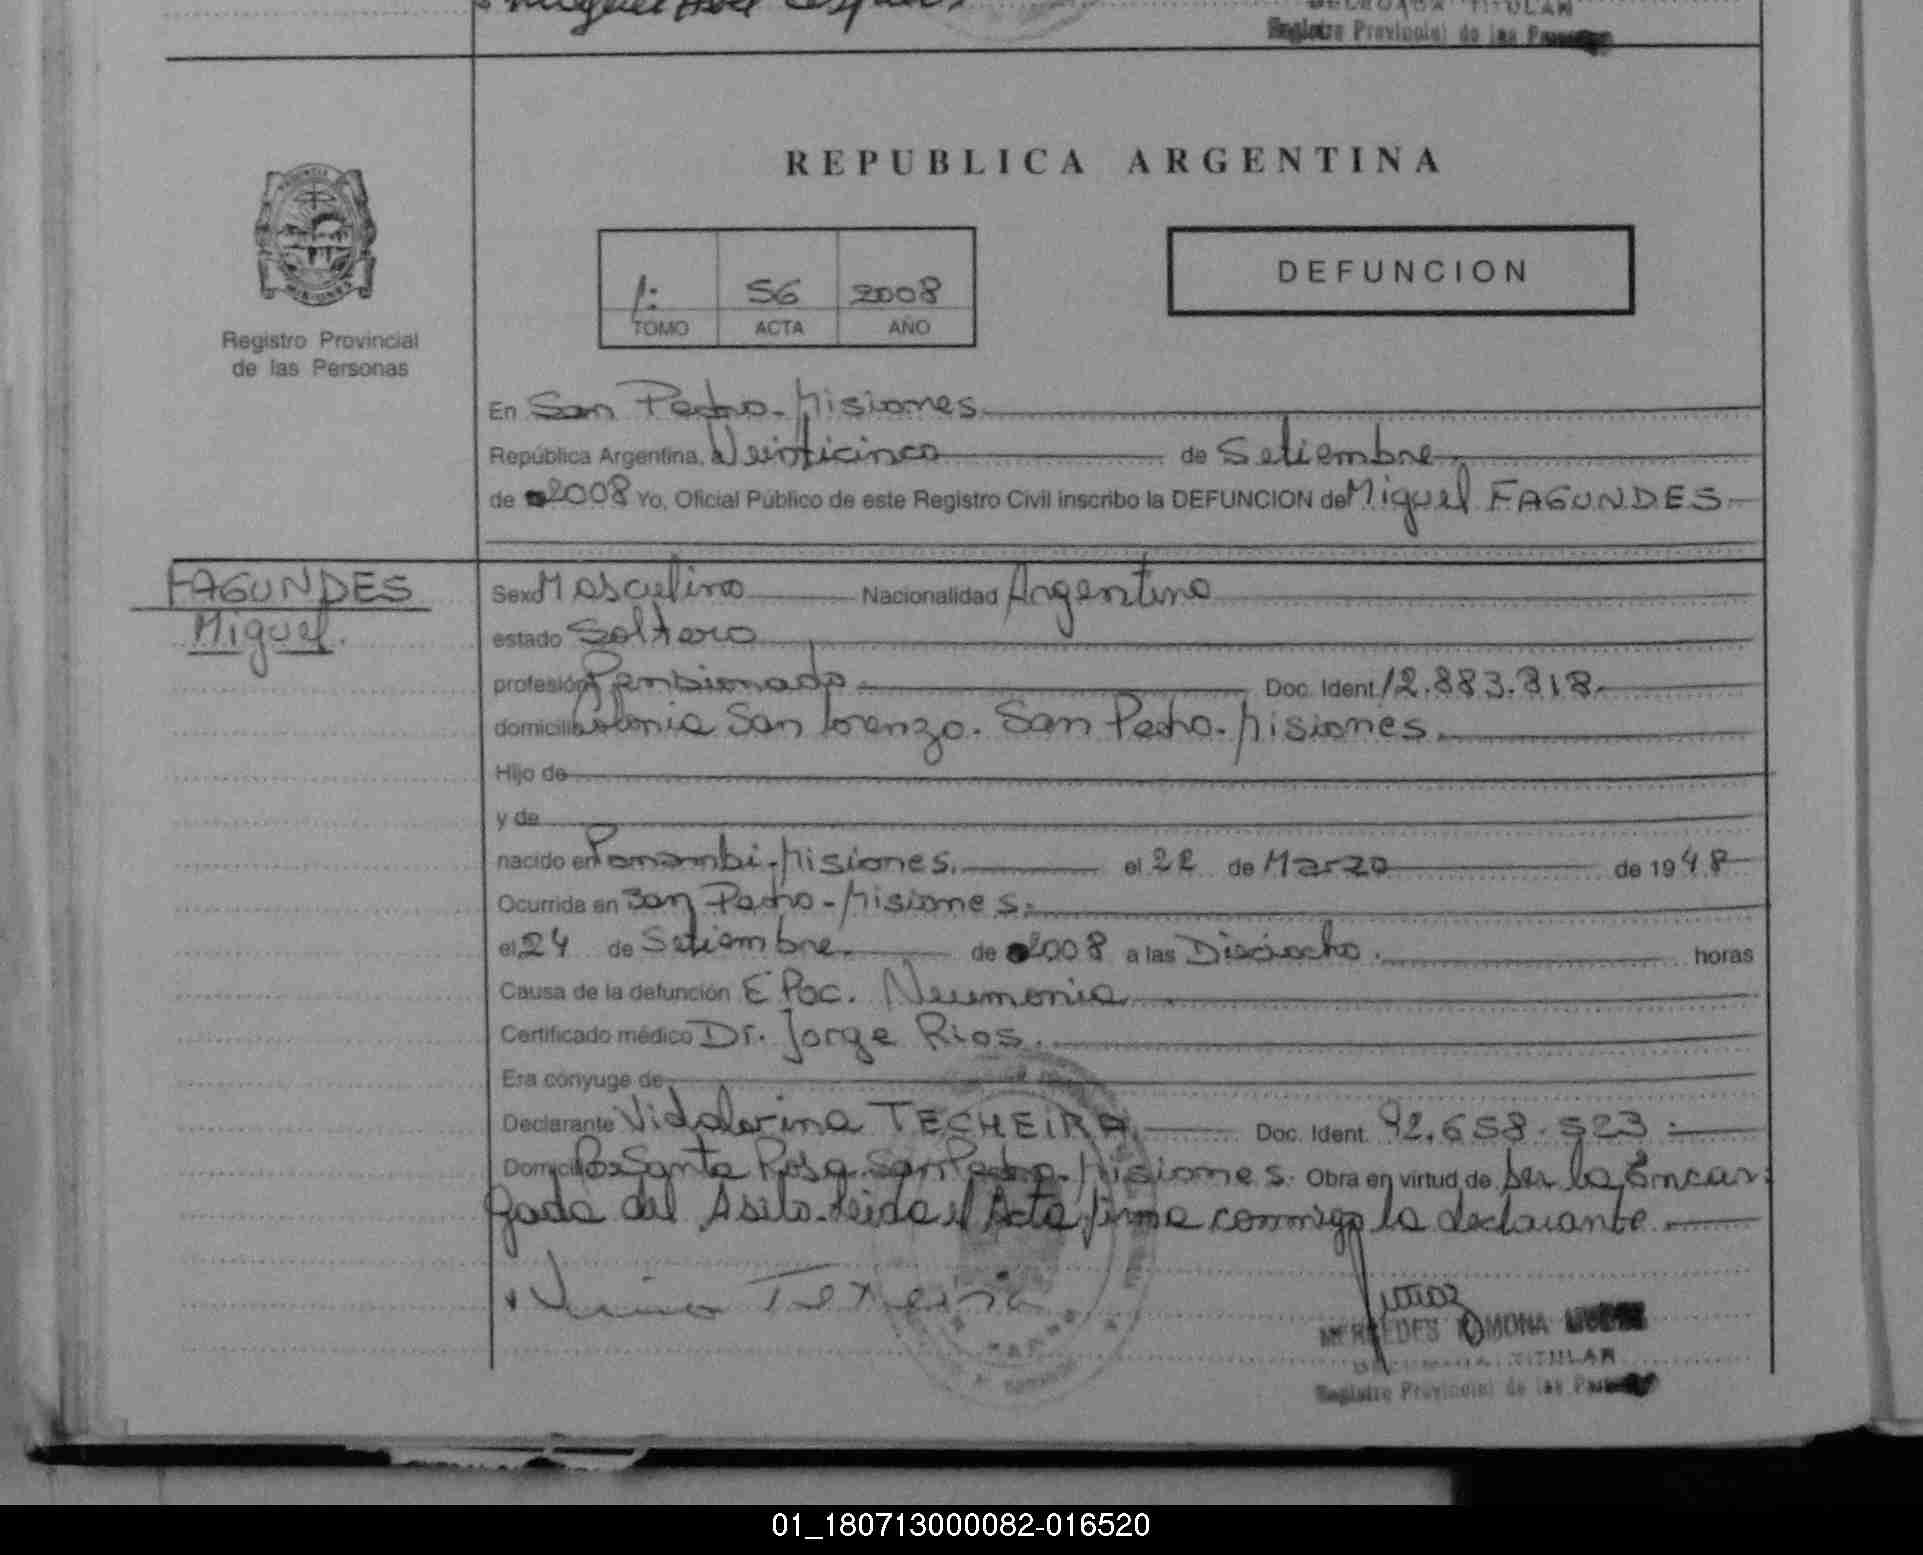 Registro Provincial de las
REPUBLICA ARGENTINA
1: 56 2008
TOMO ACTA AÑO
DEFUNCION
Registro Provincial
de las Personas
En San Pedro - Misiones
República Argentina, a Veinticinco de Setiembre
de 2008 Yo, Oficial Público de este Registro Civil inscribo la DEFUNCION de Miguel FAGUNDES
FAGUNDES
Miguel.
Sexo Masculino Nacionalidad Argentino
estado Soltero
profesión Pensionado Doc. Ident. 12.883.818
domicilio Colonia San Lorenzo. San Pedro. Misiones.
Hijo de
y de
nacido en Panambi - Misiones. el 22 de Marzo de 1948
Ocurrida en San Pedro - Misiones.
el 24 de Setiembre. de 2008 a las Dieciocho. horas
Causa de la defunción EPoc. Neumonia
Certificado médico Dr. Jorge Rios.
Era cónyuge de
Declarante Vidalvina TECHEIRA Doc. Ident. 92.658.523
Domicilio Bº Santa Rosa San Pedro - Misiones. Obra en virtud de ser la Encar-
gada del Asilo. Leida el Acta firma conmigo la declarante.
MERCEDES RAMONA
DELEGADA TITULAR
Registro Provincial de las
01_180713000082-016520